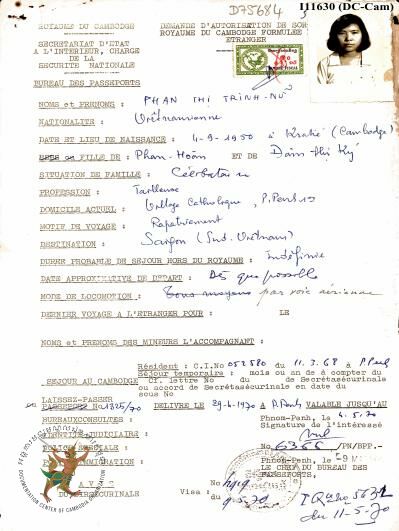 D75684
I11630 (DC-Cam)
ROYAUME DU CAMBODGE
DEMANDE D'AUTORISATION DE SOR
ROYAUME DU CAMBODGE FORMULEE
ETRANGER
SECRETARIAT D'ETAT
A L'INTERIEUR, CHARGE
DE LA
SECURITE NATIONALE
BUREAU DES PASSEPORTS
NOMS et PRENOMS : PHAN THI TRINH-NỮ
NATIONALITE : Vietnamienne
DATE ET LIEU DE NAISSANCE : 4-9-1950 à Kratié (Cambodge)
FILLE DE : Phan-Hoàn ET DE Đàm-thi Ký
SITUATION DE FAMILLE : Célibataire
PROFESSION : Tailleuse
DOMICILE ACTUEL : Village Catholique, P. Penh
MOTIF DE VOYAGE : Rapatriement
DESTINATION : Saigon (Sud-Vietnam)
DUREE PROBABLE DE SEJOUR HORS DU ROYAUME : Indéfinie
DATE APPROXIMATIVE DE DEPART : Dès que possible
MODE DE LOCOMOTION : Tous moyens par voie aérienne
DERNIER VOYAGE A L'ETRANGER POUR : LE
NOMS et PRENOMS DES MINEURS L'ACCOMPAGNANT :
Résident : C.I.No 052580 du 11.3.68 à P. Penh
Séjour temporaire : mois ou an de à compter du
SEJOUR AU CAMBODGE Cf. lettre No du de Secrétaséurinale
ou accord de Secrétaséurinale en dat du
LAISSEZ-PASSER
PASSEPORT No 1325/70 DELIVRE LE 29-4-1970 à P. Penh VALABLE JUSQU'AU
BUREAUX CONSULTES : Phnom-Penh, le 4.5.70
IDENTITE JUDICIAIRE : Signature de l'intéressé
POLICE SPECIALE :
No. 6366 /PN/BPP.-
IMMIGRATION
Phnom-Penh, le
LE CHEF DU BUREAU DES
PASSEPORTS,
A V I S
Visa :
du 11-5-70
DOCUMENTATION CENTER OF CAMBODIA